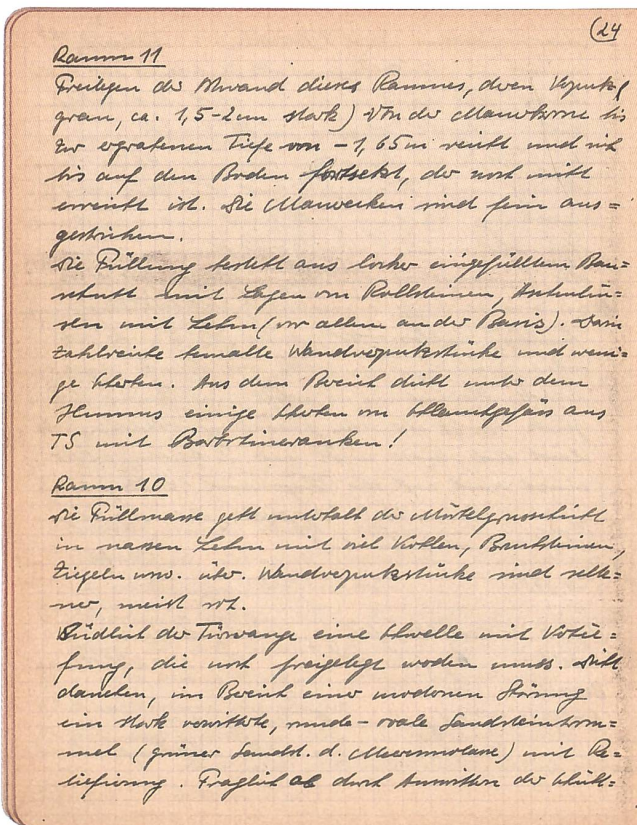 (24
Raum 11
Freilegen der Abwand dieses Raumes, deren Verputz (
grau, ca. 1,5-2cm stark) von der Mauerkrone bis
zur ergrabenen Tiefe von -1,65m reicht und sich
bis auf den Boden fortsetzt, der noch nicht
erreicht ist. Die Mauerecken sind fein aus=
gestrichen.
Die Füllung besteht aus locker eingefülltem Bau=
schutt mit Lagen von Rollsteinen, Aschelin=
sen mit Lehm (vor allem an der Basis). Darin
zahlreiche bemalte Wandverputzstücke und weni=
ge Scherben. Aus dem Bereich dicht unter dem
Humus einige Scherben von Schlauchgefäss aus
TS mit Barbotineranken!
Raum 10
Die Füllmasse geht unterhalb der Mörtelgrusschicht
in nassen Lehm mit viel Kohlen, Bruchsteinen,
Ziegeln usw. über. Wandverputzstücke sind selte=
ner, meist rot.
Südlich der Türwange eine Schwelle mit Vertie=
fung, die noch freigelegt werden muss. Dicht
daneben, im Bereich einer modernen Störung
ein stark verwitterte, runde-ovale Sandsteintrom=
mel (grüner Sandst. d. Meeresmolasse) mit Re=
liefierung. Fraglich ob durch Auswittern der Schich=